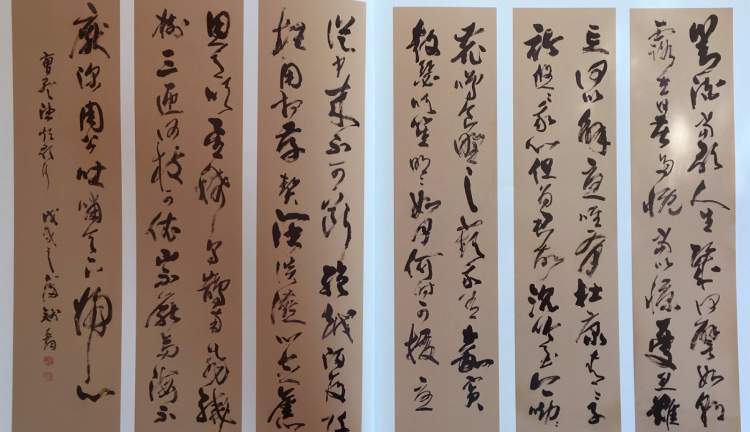 對酒當歌人生幾何譬如朝
露去日苦多慨當以慷憂思難
忘何以解憂唯有杜康青青子
衿悠悠我心但為君故沈吟至今呦呦
鹿鳴食野之苹我有嘉賓
鼓瑟吹笙明明如月何時可掇憂
從中來不可斷絕越陌度阡
枉用相存契闊談讌心念舊
恩月明星稀烏鵲南飛繞
樹三匝何枝可依山不厭高海不
厭深周公吐哺天下歸心
曹孟德短歌行 戊戌之夏